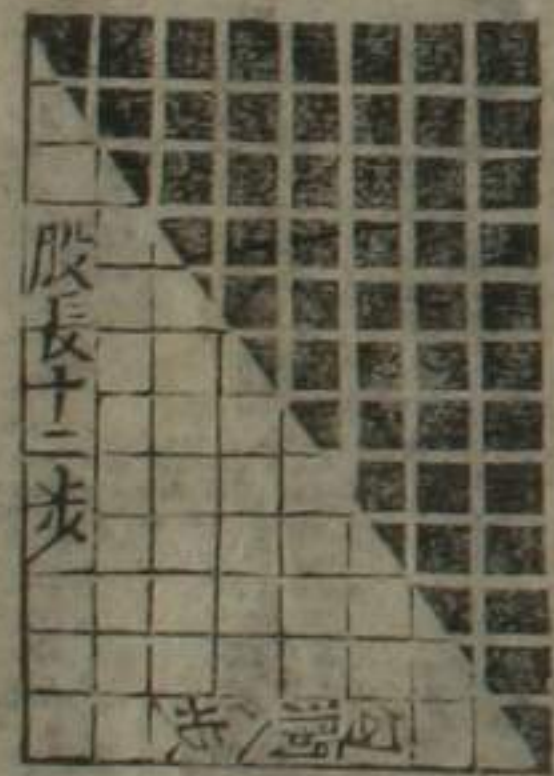 股長十二步
勾闊八步